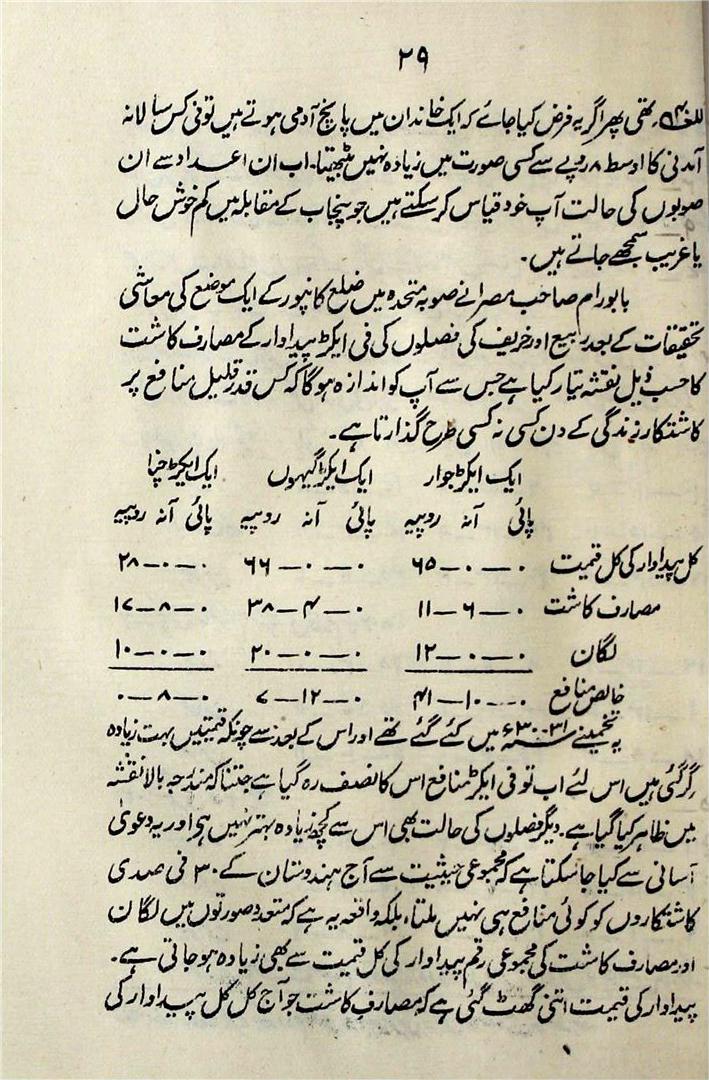 ۲۹
تھی پھر اگر یہ فرض کیا جائے کہ ایک خاندان میں پانچ آدمی ہوتے ہیں تو فی کس سالانہ
آمدنی کا اوسط ۸ روپے سے کسی صورت میں زیادہ نہیں بیٹھتا۔ اب ان اعداد سے ان
صوبوں کی حالت آپ خود قیاس کر سکتے ہیں جو پنجاب کے مقابلہ میں کم خوش حال
یا غریب سمجھے جاتے ہیں۔
بابو رام صاحب مصرا نے صوبہ متحدہ میں ضلع کانپور کے ایک موضع کی معاشی
تحقیقات کے بعد ربیع اور خریف کی فصلوں کی فی ایکڑ پیداوار کے مصارف کاشت
کا حسب ذیل نقشہ تیار کیا ہے جس سے آپ کو اندازہ ہوگا کہ کس قدر قلیل منافع پر
کاشتکار زندگی کے دن کسی نہ کسی طرح گذارتا ہے۔
ایک ایکڑ جوار ایک ایکڑ گیہوں ایک ایکڑ چنا
پائی آنہ روپیہ پائی آنہ روپیہ پائی آنہ روپیہ
کل پیداوار کی کل قیمت ۰—۰—۶۵ ۰—۰—۶۶ ۰—۰—۲۸
مصارف کاشت ۰—۶—۱۱ ۰—۴—۳۸ ۰—۸—۱۷
لگان ۰—۰—۱۲ ۰—۰—۲۰ ۰—۰—۱۰
خالص منافع ۰—۱۰—۴۱ ۰—۱۲—۷ ۰—۸—۰
یہ تخمینے ۳۱-۱۹۳۰ء میں کئے گئے تھے اور اس کے بعد سے چونکہ قیمتیں بہت زیادہ
گر گئی ہیں اس لئے اب تو فی ایکڑ منافع اس کا نصف رہ گیا ہے جتنا کہ مندرجہ بالا نقشہ
میں ظاہر کیا گیا ہے۔ دیگر فصلوں کی حالت بھی اس سے کچھ زیادہ بہتر نہیں ہی اور یہ دعویٰ
آسانی سے کیا جا سکتا ہے کہ مجموعی حیثیت سے آج ہندوستان کے ۳۰ فی صدی
کاشتکاروں کو کوئی منافع ہی نہیں ملتا، بلکہ واقعہ یہ ہے کہ متعدد صورتوں میں لگان
اور مصارف کاشت کی مجموعی رقم پیداوار کی کل قیمت سے بھی زیادہ ہو جاتی ہے۔
پیداوار کی قیمت اتنی گھٹ گئی ہے کہ مصارف کاشت جو آج کل کل پیداوار کی